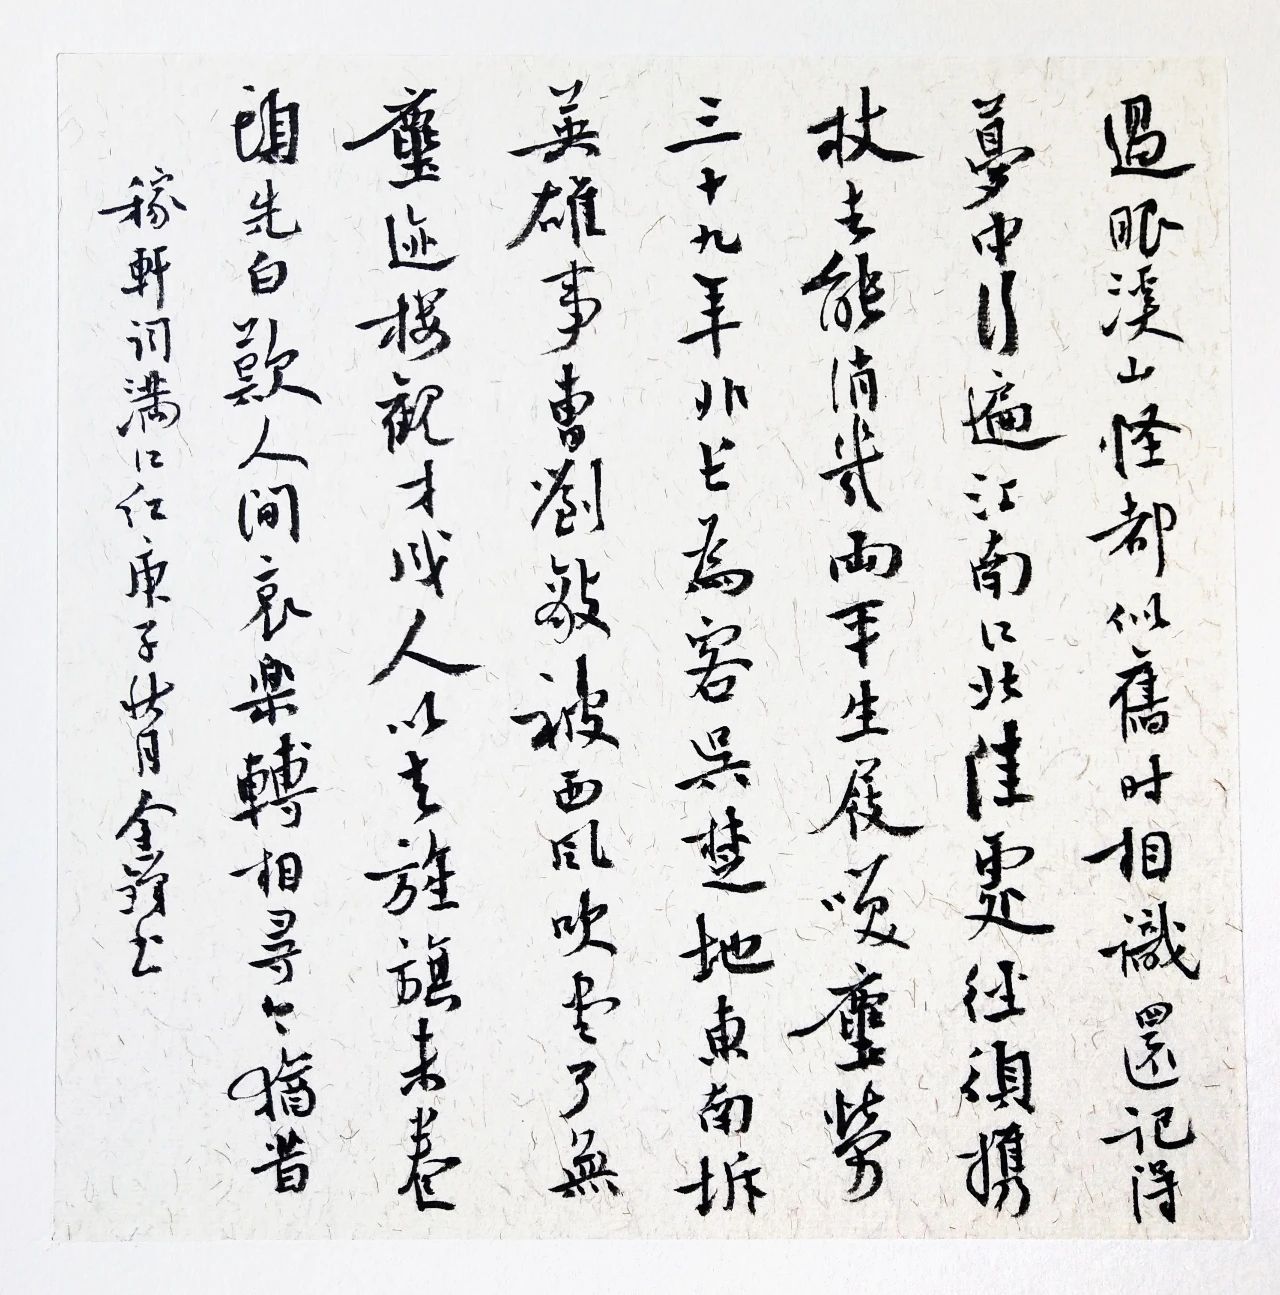 過眼溪山怪都似舊时相識還記得
夢中行遍江南江北佳處徑須携
杖去能消幾兩平生屐笑塵勞
三十九年非長為客吳楚地東南拆
英雄事曹劉敵被西風吹盡了無
塵迹楼觀才成人以去旌旗未卷
頭先白歎人間哀樂轉相尋今猶昔
稼軒词满江红庚子秋月金书